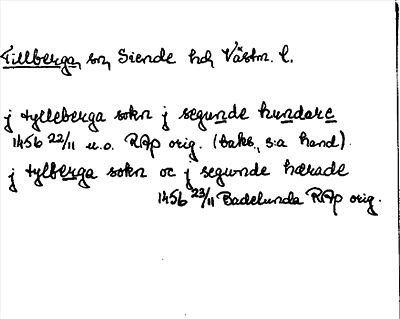 Tillberga, sn, Siende hd, Västm. l.
j tylleberga sokn j segunde hundare
1456 22/11 u.o. RAp orig. (baks., s:a hand).
j tylberga sokn oc j segwnde hærade
1456 23/11 Badelunda RAp orig.